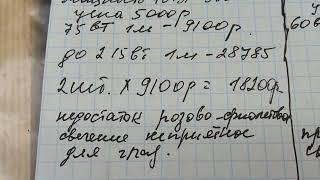 цена 5000р
75 вт 1м - 9100р.
60в
до 215вт 1м - 28785
2 шт. х 9100р = 18200р
недостаток розово-фиолетово
свечение неприятное
для глаз.